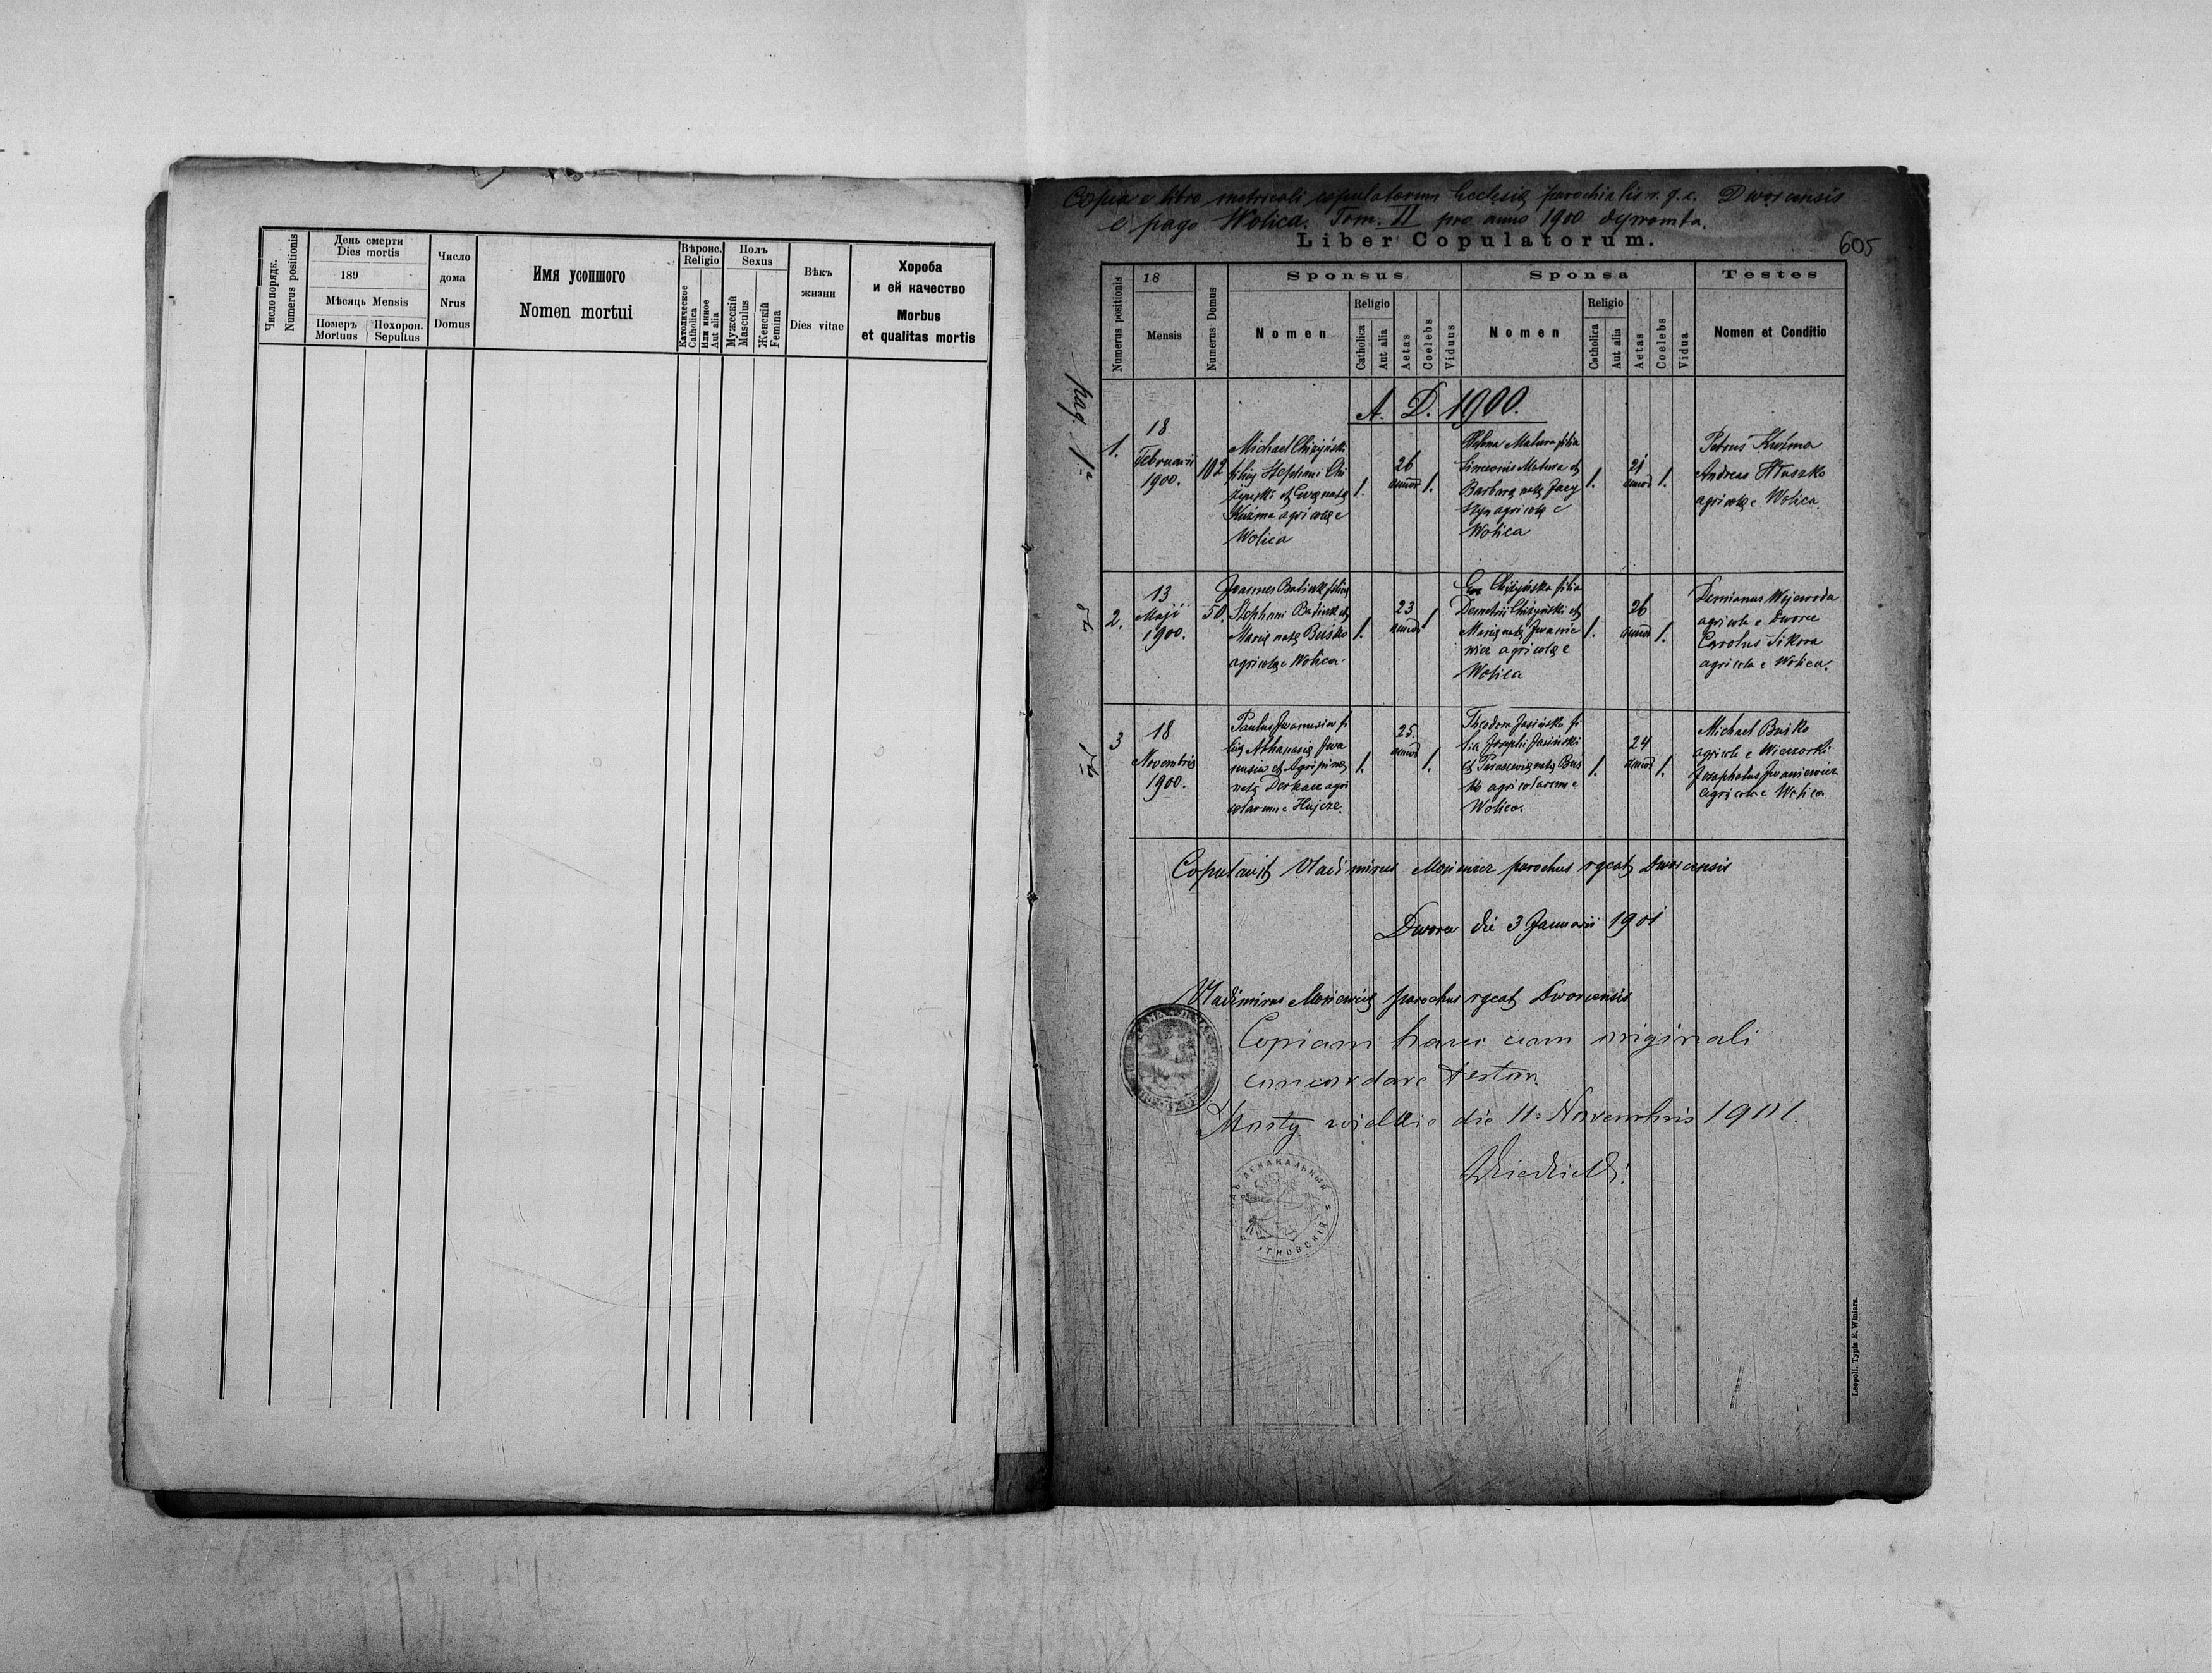 Число порядк.
Numerus positionis
День смерти
Dies mortis
189
Мѣсяць Mensis
Померъ
Mortuus
Похорон.
Sepultus
Число
дома
Nrus
Domus
Имя усопшого
Nomen mortui
Вѣроис.
Religio
Католическое
Catholica
Или иное
Aut alia
Полъ
Sexus
Мужескій
Masculus
Женскій
Femina
Вѣкъ
жизни
Dies vitae
Хороба
и ей качество
Morbus
et qualitas mortis
Copia e libro metricali copulatorum Ecclesię parochialis r. g. c. Dworcensis
e pago Wolica. Tom. II pro anno 1900 depromta.
Liber Copulatorum.
605
Numerus positionis
18
Mensis
Numerus Domus
Sponsus
Nomen
Religio
Catholica
Aut alia
Aetas
Coelebs
Viduus
Sponsa
Nomen
Religio
Catholica
Aut alia
Aetas
Coelebs
Vidua
Testes
Nomen et Conditio
A. D. 1900.
pag. 1.
1.
18
Februarii
1900.
102
Michael Chiżyński
filius Stephani Chi
żyński et Evę natę
Kuźma agricolę e
Wolica
1.
26
annor
1.
Helena Matura filia
Simeonis Matura et
Barbarę natę Jacy
szyn agricolę e
Wolica
1.
21
annor
1.
Petrus Kuźma
Andreas Hłuszko
agricolę e Wolica.
2.
13
Maji
1900.
50.
Joannes Batiuk filius
Stephani Batiuk et
Marię natę Buśko
agricolę e Wolica.
1.
23
annor
1
Eva Chiżyńska filia
Demetrii Chiżyński et
Marię natę Iwanie
wicz agricolę e
Wolica
1.
26
annor
1.
Demianus Wojewoda
agricola e Dworce
Carolus Sikora
agricola e Wolica.
3
18
Novembris
1900.
Paulus Iwanusiw fi
lius Athanasię Iwa
nusiw et Agripinę
natę Derkacz agri
colarum e Hujcze.
1.
25.
annor
1.
Theodora Jasińska fi
lia Josephi Jasiński
et Parascevię natę Bus
ko agricolarum e
Wolica.
1.
24
annor
1.
Michael Buśko
agricola e Wieczorki
Jozaphatus Iwaniewicz
agricola e Wolica
Copulavit Vladimirus Mosiewicz parochus rgcat Dworcensis
Dworce die 3 Januarii 1901
Vladimirus Mosiewicz parochus rgcat Dworcensis
Copiam hanc cum originali
concordare testor
Mosty wielkie die 11. Novembris 1901.
Leopoli. Typis E. Winiarz.